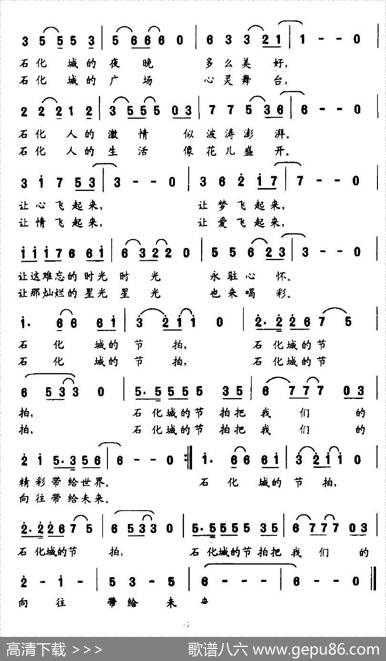 3 5 5 5 5 3 | 5 6 6 6 0 | 6 3 3 3 2 1 | 1 - - 0 |
石化 城的 夜 晚 多 么 美 好，
石化 城的 广 场 心 灵 舞 台，
2 2 2 1 2 | 3 5 5 5 0 3 | 7 7 5 3 6 | 6 - - 0 |
石化 人 的 激 情 似 波 涛 澎 湃。
石化 人 的 生 活 像 花 儿 盛 开。
3 1 7 5 3 | 3 - - 0 | 3 6 2 1 7 | 7 - - 0 |
让 心 飞 起 来， 让 梦 飞 起 来，
让 情 飞 起 来， 让 爱 飞 起 来，
1 1 1 7 6 6 1 | 6 3 2 2 0 | 5 5 6 2 3 | 3 - - 0 |
让这难忘的 时光 时 光 永 驻 心 怀。
让那灿烂的 星光 星 光 也 来 喝 彩。
1. 6 6 6 1 | 3 2 1 1 0 | 2. 2 2 6 7 5 |
石 化 城的 节 拍， 石 化城的 节
石 化 城的 节 拍， 石 化城的 节
6 5 3 3 0 | 5. 5 5 5 5 3 5 | 6 7 7 7 0 3 |
拍， 石 化城的节 拍把 我 们 的
拍， 石 化城的节 拍把 我 们 的
2 1 5. 3 5 6 | 6 - - 0 :‖ 1. 6 6 6 1 | 3 2 1 1 0 |
精彩 带 给世界。 石 化 城的 节 拍，
向往 带 给未来。
2. 2 2 6 7 5 | 6 5 3 3 0 | 5. 5 5 5 5 3 5 | 6 7 7 7 0 3 |
石 化城的 节 拍， 石 化城的节 拍把 我 们 的
2 - 1 - | 5 3 - 5 | 6 - - - | 6 - - 0 ‖
向 往 带 给 未
高清下载 >>> 歌谱八六 www.gepu86.com